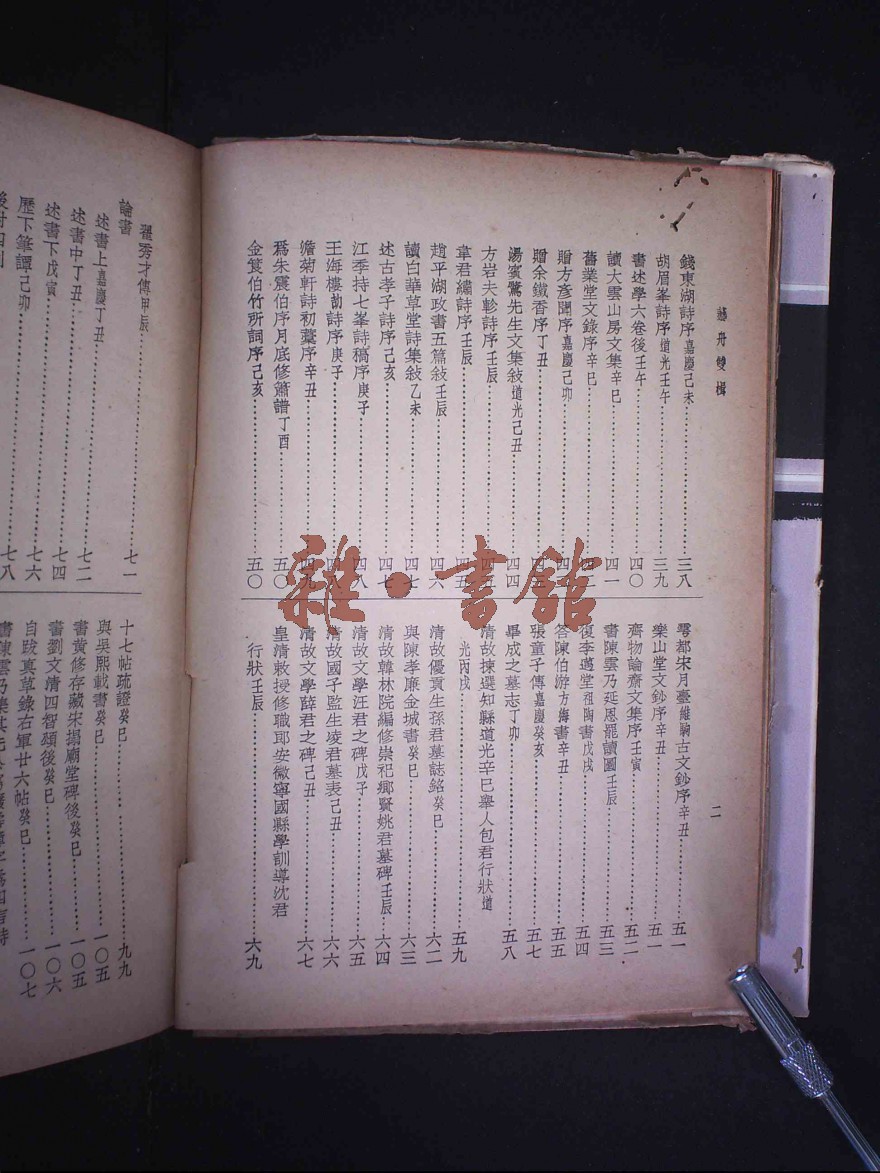 藝舟雙楫
錢東湖詩序嘉慶己未……三八
胡眉峯詩序道光壬午……三九
書述學六卷後壬午……四〇
讀大雲山房文集辛巳……四一
舊業堂文錄序辛巳……四二
贈方彥聞序嘉慶己卯
贈余鐵香序丁丑
湯賓鷺先生文集敍道光己丑……四四
方岩夫軫詩序壬辰
韋君繡詩序壬辰
趙平湖政書五篇敍壬辰……四六
讀白華草堂詩集敍乙未……四七
述古孝子詩序己亥……四七
江季持七峯詩稿序庚子……四八
王海樓勛詩序庚子
澹菊軒詩初藁序辛丑
爲朱震伯序月底修簫譜丁酉……五〇
金筤伯竹所詞序己亥……五〇
雩都宋月臺維駒古文鈔序辛丑……五一
樂山堂文鈔序辛丑……五一
齊物論齋文集序壬寅……五二
書陳雲乃延恩罷讀圖壬辰……五三
復李邁堂祖陶書戊戌……五四
答陳伯游方海書辛丑……五五
張童子傳嘉慶癸亥……五七
畢成之墓志丁卯……五八
清故揀選知縣道光辛巳舉人包君行狀道
光丙戌……五九
清故優貢生孫君墓誌銘癸巳……六二
與陳孝廉金城書癸巳……六三
清故翰林院編修崇祀鄉賢姚君墓碑壬辰……六四
清故文學汪君之碑戊子……六五
清故國子監生凌君墓表己丑……六六
清故文學薛君之碑己丑……六七
皇清敕授修職郎安徽寧國縣學訓導沈君
行狀壬辰……六九
二
翟秀才傳甲辰……七一
論書
述書上嘉慶丁丑……七二
述書中丁丑
述書下戊寅……七四
歷下筆譚己卯……七六
……七八
十七帖疏證癸巳……九九
與吳熙載書癸巳……一〇五
書黃修存藏宋搨廟堂碑後癸巳……一〇五
書劉文清四智頌後癸巳……一〇六
自跋真草錄右軍廿六帖癸巳……一〇七
雜·書館